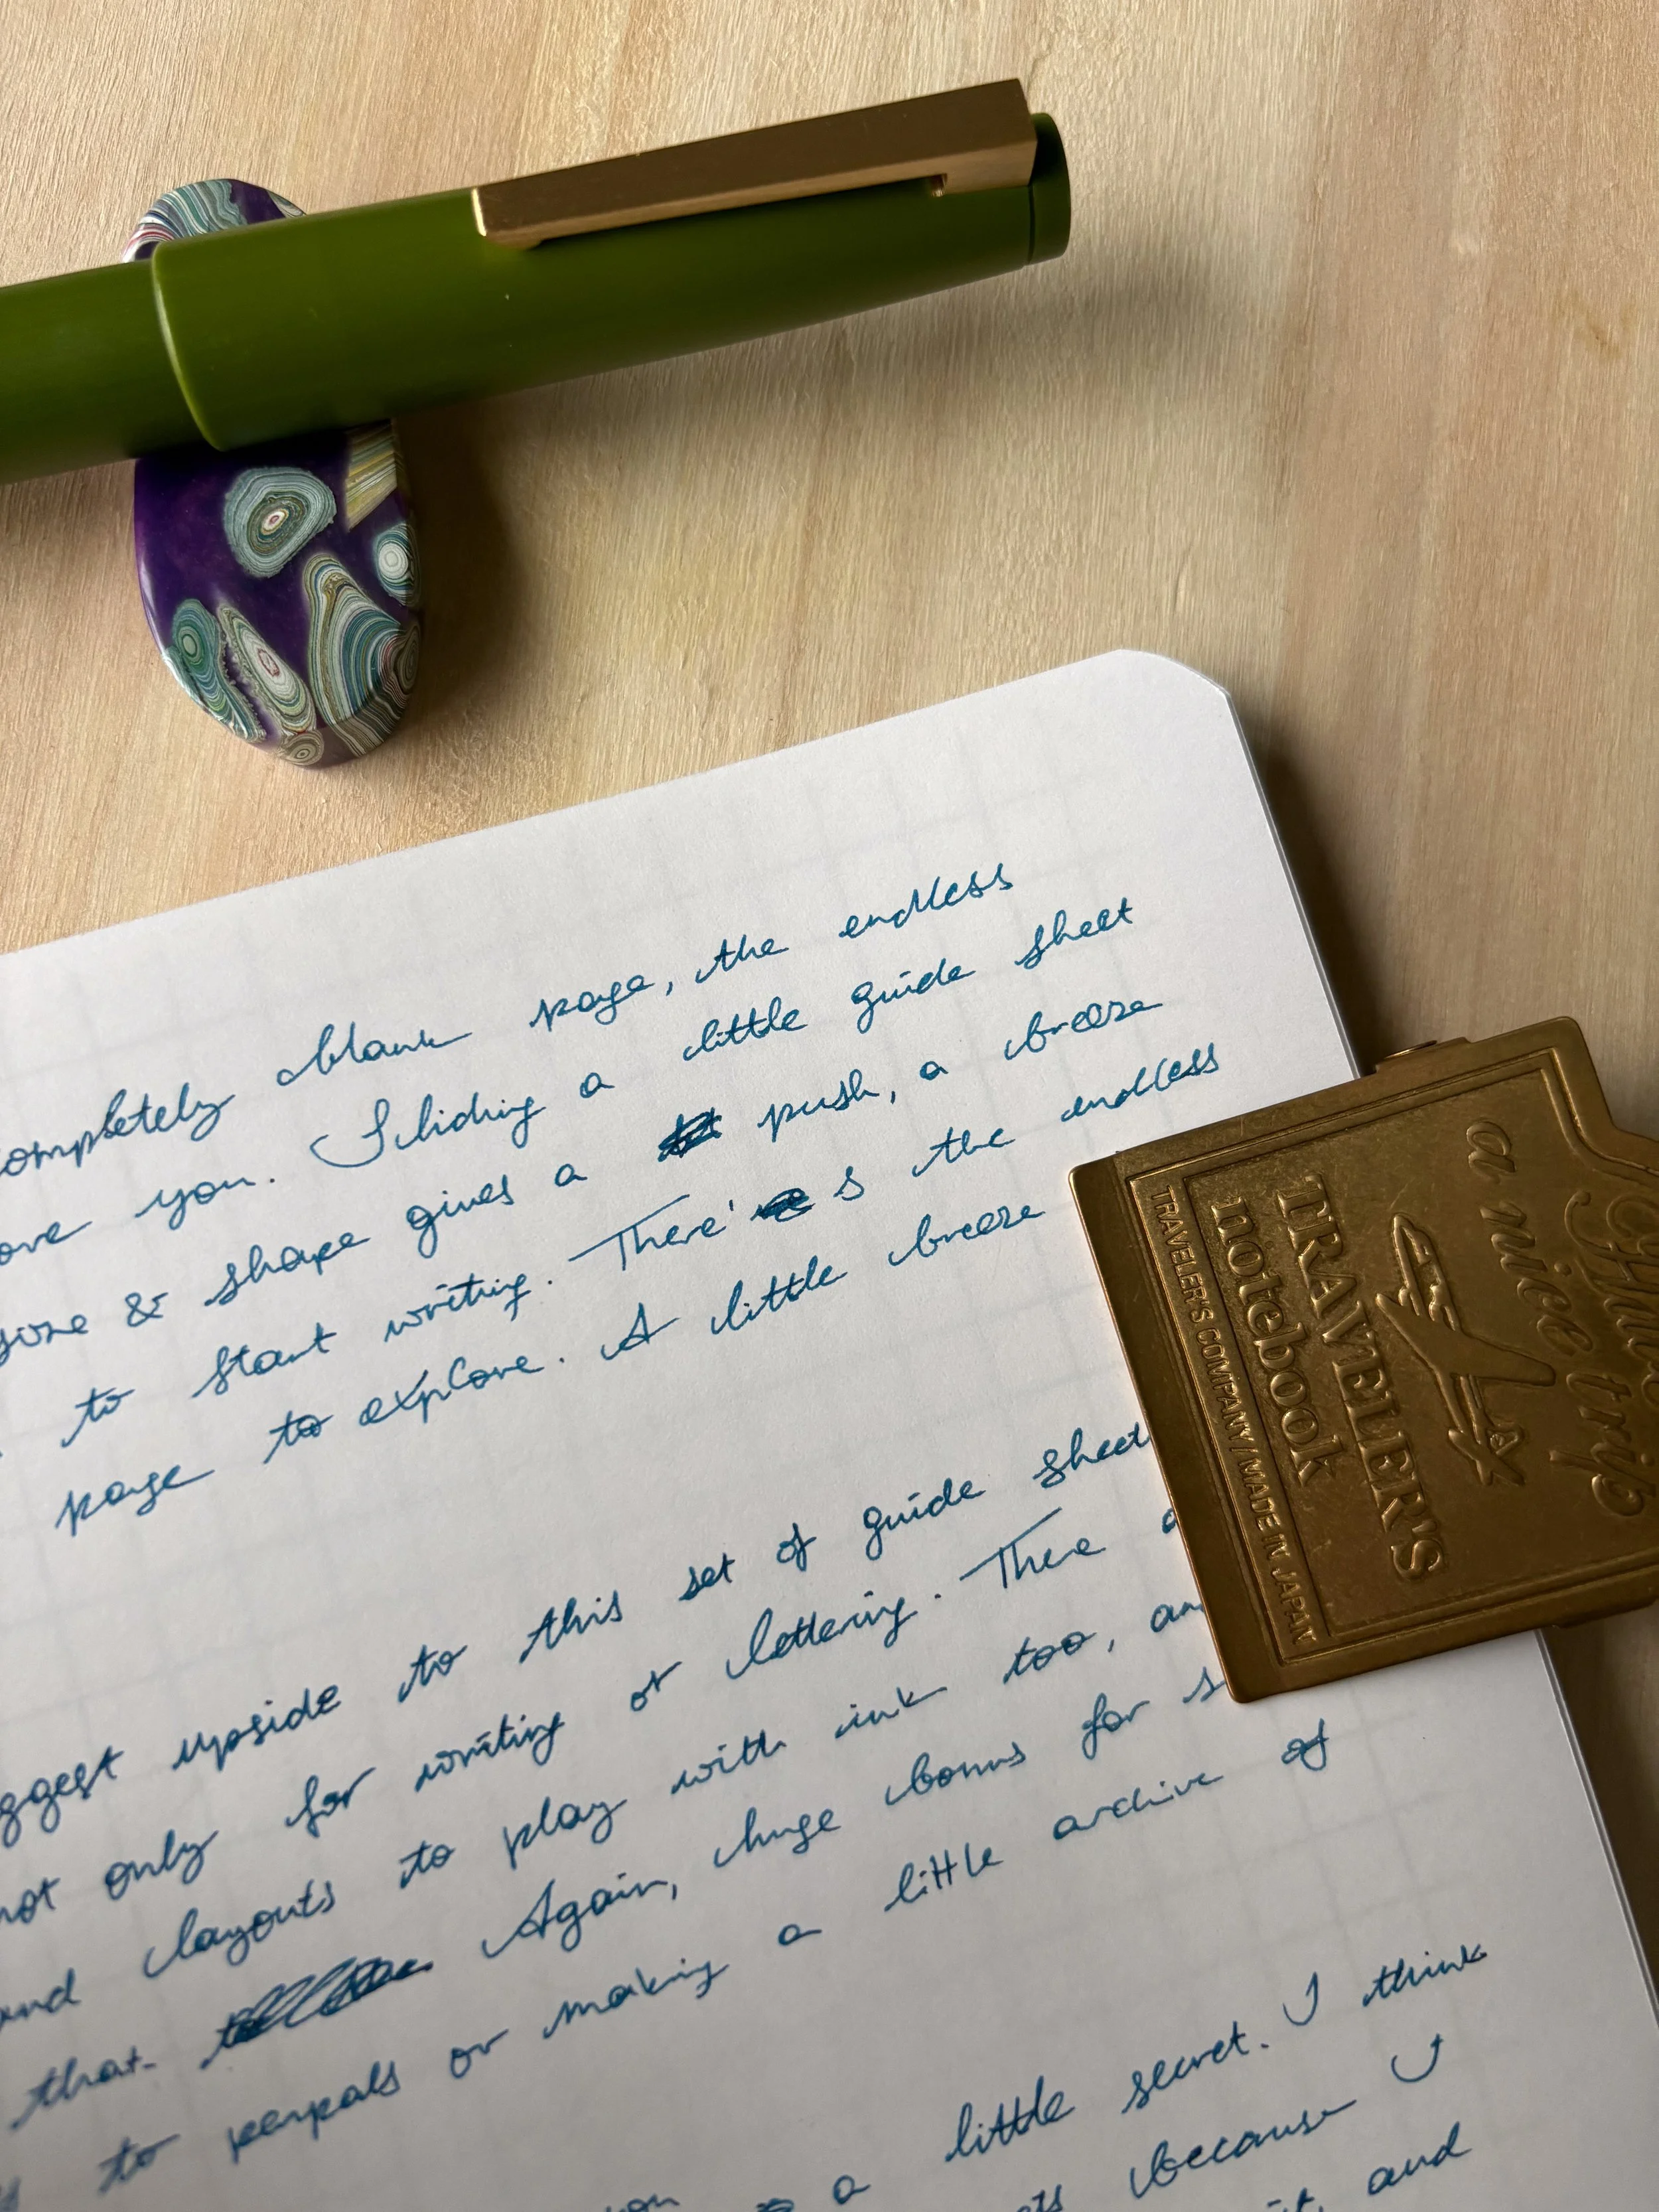 completely blank page, the endless
you. Sliding a little guide sheet
& shape gives a push, a breeze
to start writing. There's the endless
page to explore. A little breeze
upside to this set of guide sheet
not only for writing or lettering. There
and layouts to play with ink too,
that Again, huge bonus for
to penpals or making a little archive of
a little secret. I think
because I
and
a nice trip
TRAVELER'S
notebook
TRAVELER'S COMPANY/MADE IN JAPAN